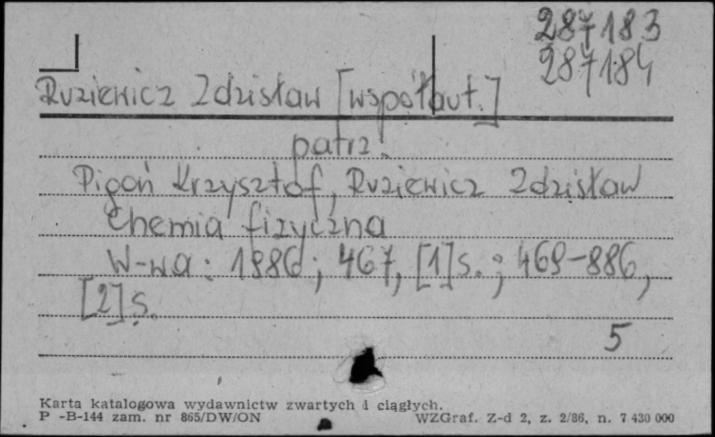 287183
287184
Ruziewicz Zdzisław [współaut.]
patrz:
Pigoń Krzysztof, Ruziewicz Zdzisław
Chemia fizyczna
W-wa: 1986; 467, [1]s.; 469-886,
[2]s.
5
Karta katalogowa wydawnictw zwartych i ciągłych.
P -B-144 zam. nr 865/DW/ON WZGraf. Z-d 2, z. 2/86, n. 7 430 000